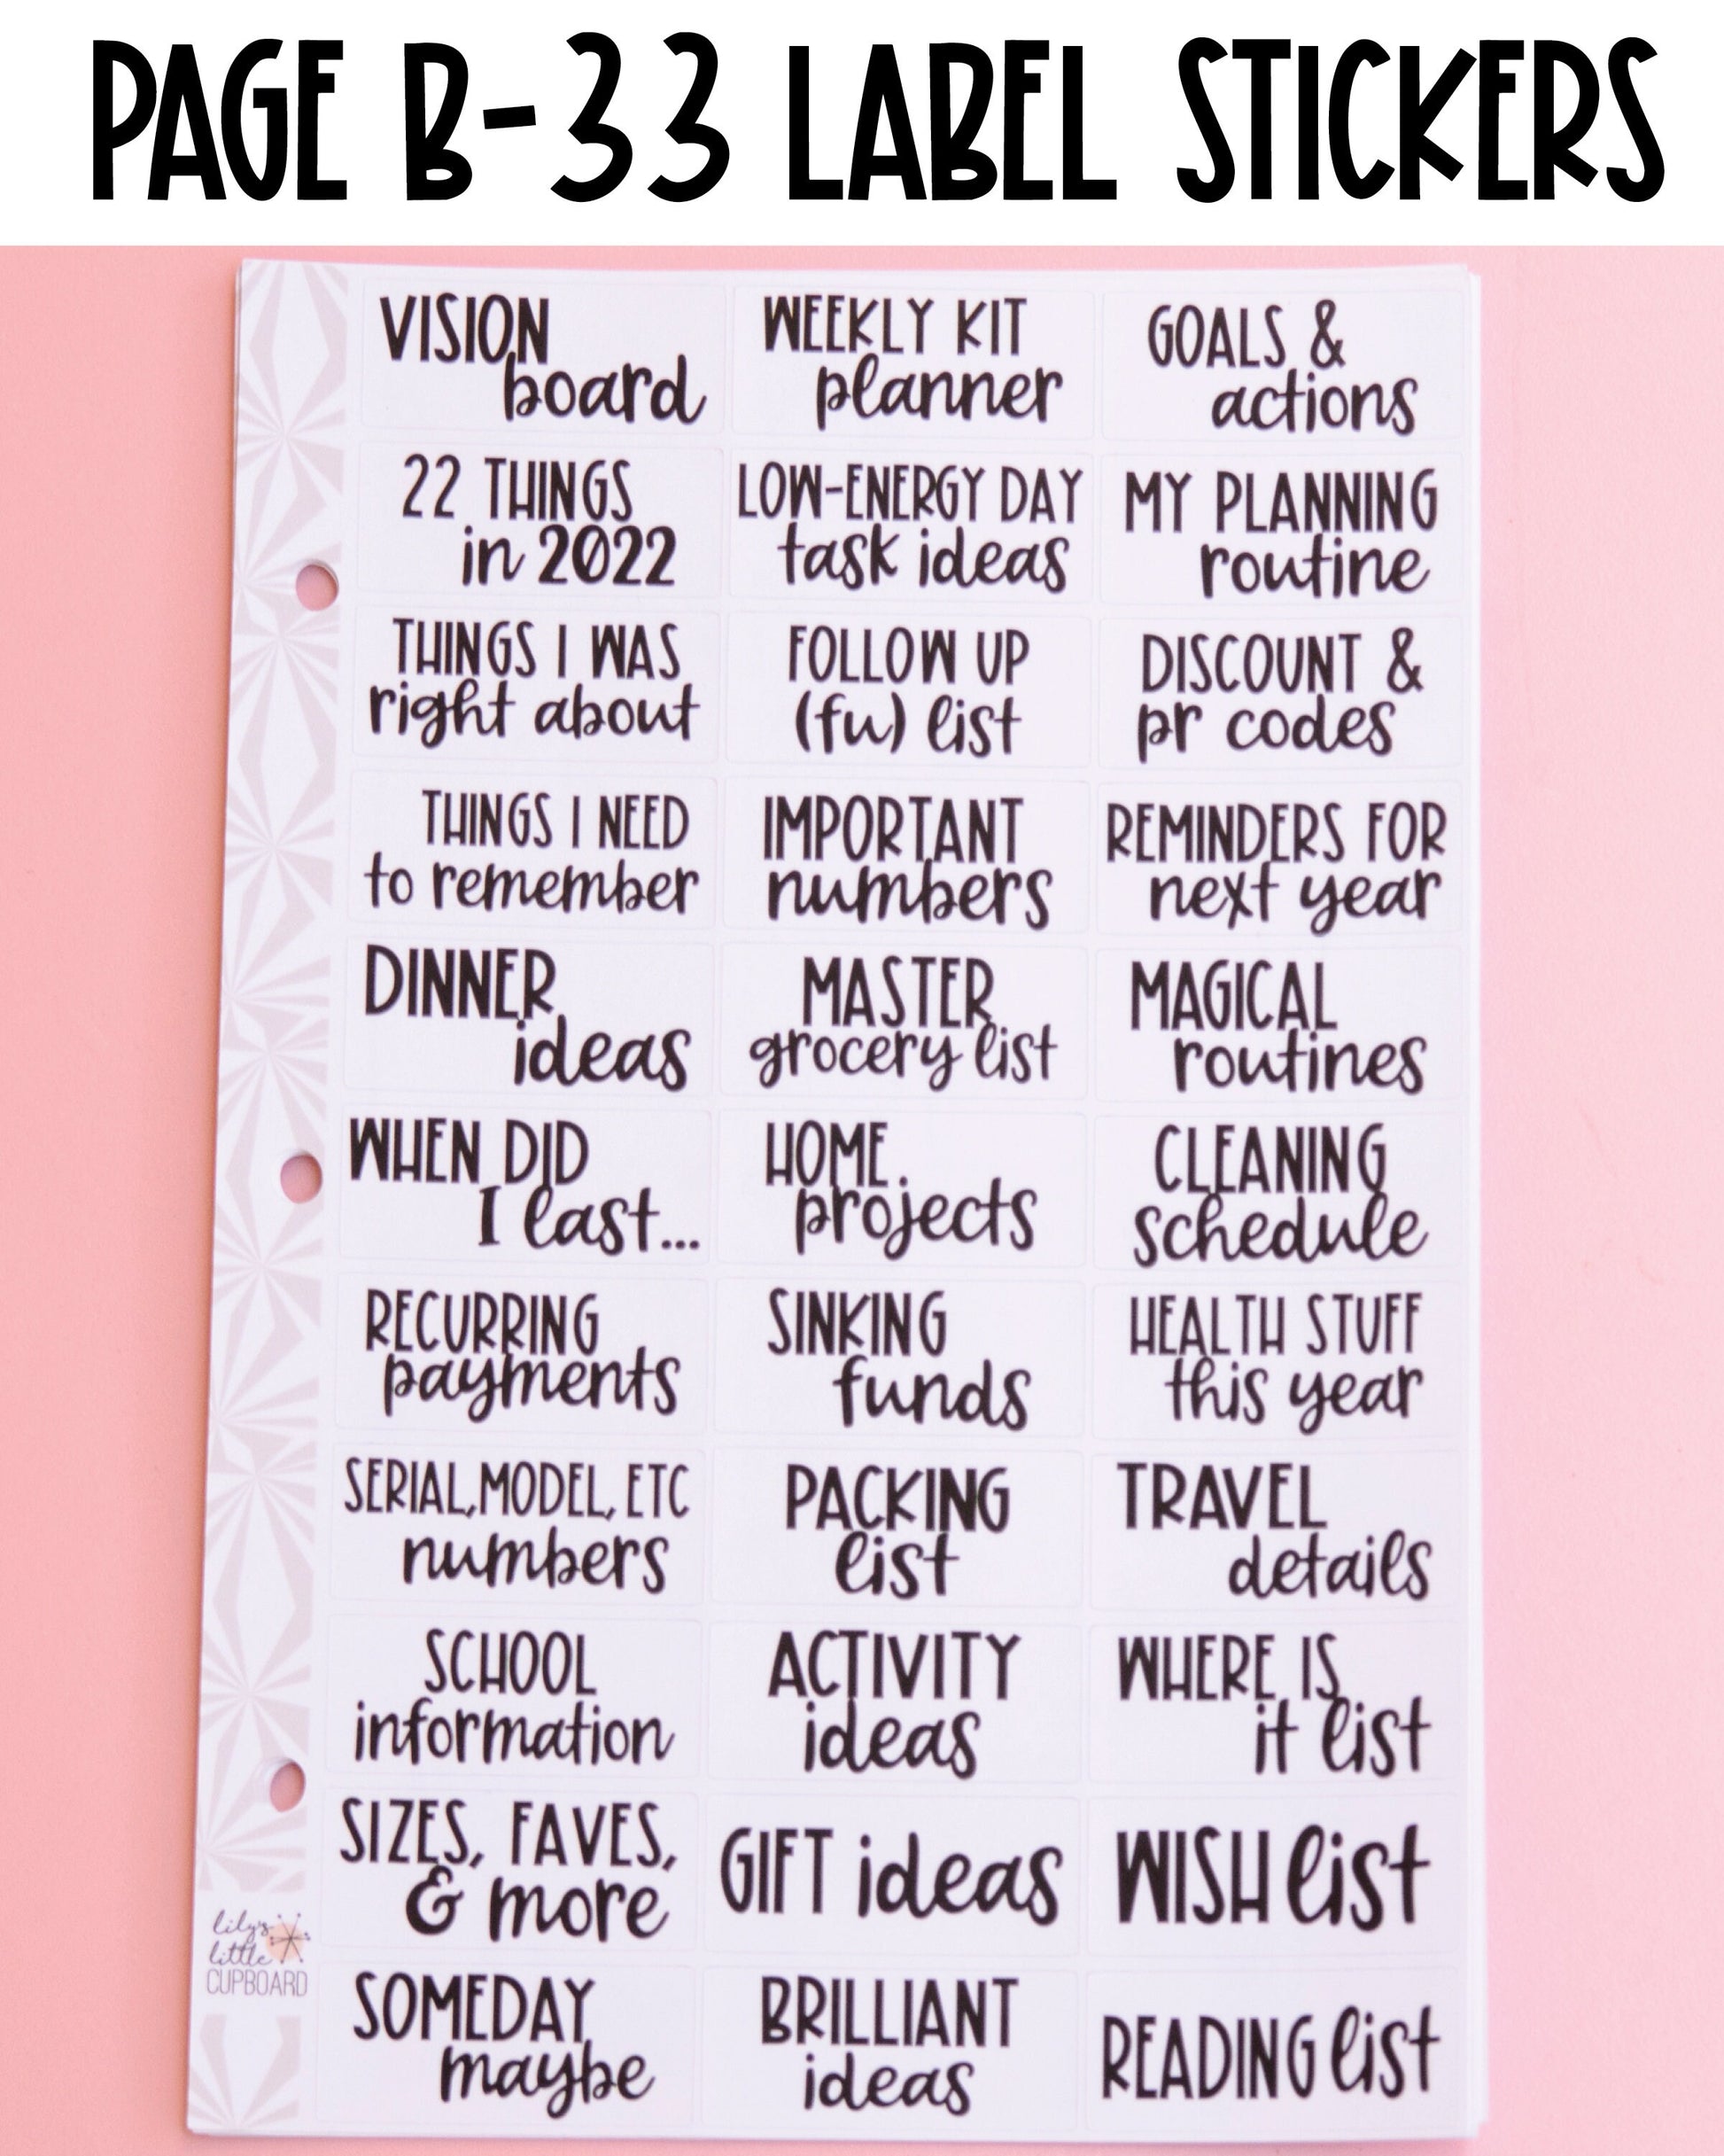 PAGE B-33 LABEL STICKERS
VISION
board
WEEKLY KIT
planner
GOALS &
actions
22 THINGS
in 2022
LOW-ENERGY DAY
task ideas
MY PLANNING
routine
THINGS I WAS
right about
FOLLOW UP
(fu) list
DISCOUNT &
pr codes
THINGS I NEED
to remember
IMPORTANT
numbers
REMINDERS FOR
next year
DINNER
ideas
MASTER
grocery list
MAGICAL
routines
WHEN DID
I last...
HOME
projects
CLEANING
schedule
RECURRING
payments
SINKING
funds
HEALTH STUFF
this year
SERIAL, MODEL, ETC
numbers
PACKING
list
TRAVEL
details
SCHOOL
information
ACTIVITY
ideas
WHERE IS
it list
SIZES, FAVES,
& more
GIFT ideas
WISH list
SOMEDAY
maybe
BRILLIANT
ideas
READING list
lily's
little
CUPBOARD